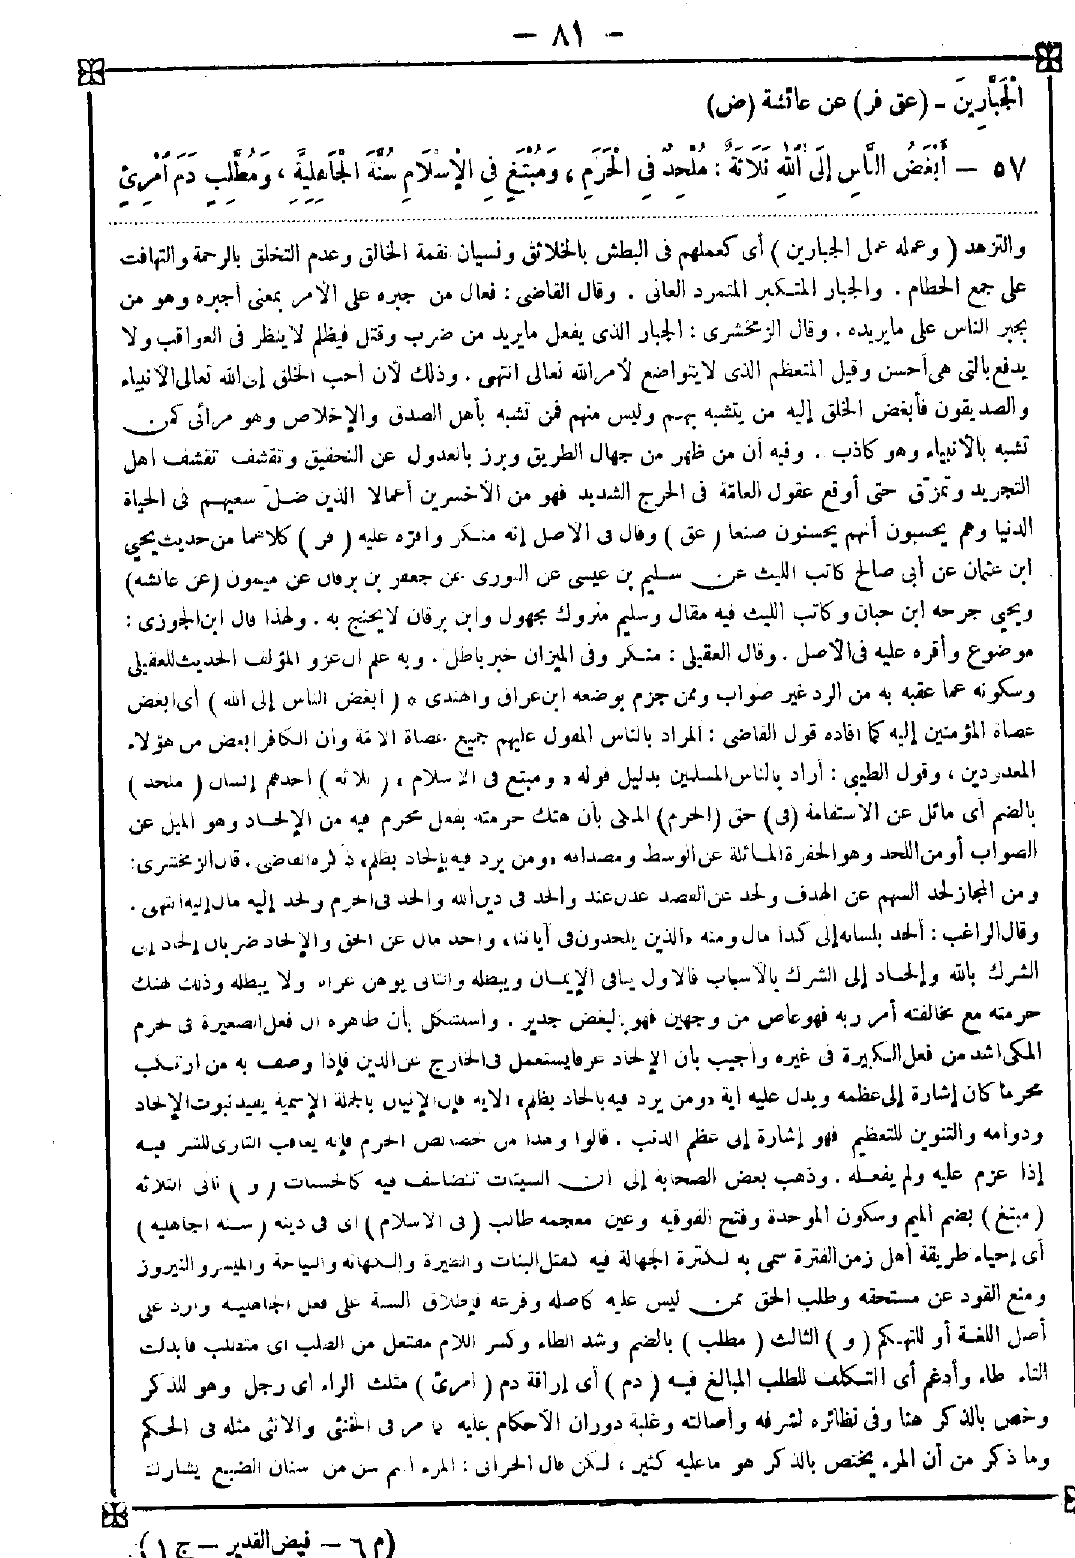 — ٨١ —
الْجَبَّارِينَ - (عق فر) عن عائشة (ض)
٥٧ — أَبْغَضُ النَّاسِ إِلَى اللهِ ثَلَاثَةٌ : مُلْحِدٌ فِى الْحَرَمِ ، وَمُبْتَغٍ فِى الْإِسْلَامِ سُنَّةَ الْجَاهِلِيَّةِ ، وَمُطَّلِبٍ دَمَ امْرِئٍ
والتزهد ( وعمله عمل الجبارين ) أى كعملهم فى البطش بالخلائق ونسيان نقمة الخالق وعدم التخلق بالرحمة والتهافت
على جمع الحطام . والجبار المتكبر المتمرد العاتى . وقال القاضى : فعال من جبره على الأمر بمعنى أجبره وهو من
يجبر الناس على مايريده . وقال الزمخشرى : الجبار الذى يفعل مايريد من ضرب وقتل فيظلم لاينظر فى العواقب ولا
يدفع بالتى هى أحسن وقيل المتعظم الذى لايتواضع لأمر الله تعالى انتهى . وذلك لأن أحب الخلق إلى الله تعالى الأنبياء
والصديقون فأبغض الخلق إليه من يتشبه بهم وليس منهم فمن تشبه بأهل الصدق والإخلاص وهو مرائى كمن
تشبه بالأنبياء وهو كاذب . وفيه أن من ظهر من جهال الطريق وبرز بالعدول عن التحقيق وتقشف تقشف أهل
التجريد وتمزق حتى أوقع عقول العامة فى الحرج الشديد فهو من الأخسرين أعمالا الذين ضل سعيهم فى الحياة
الدنيا وهم يحسبون أنهم يحسنون صنعا ( عق ) وقال فى الأصل إنه منكر واقره عليه ( فر ) كلاهما من حديث يحيى
ابن عثمان عن أبى صالح كاتب الليث عن سليم بن عيسى عن الثورى عن جعفر بن برقان عن ميمون (عن عائشة)
ويحيى جرحه ابن حبان وكاتب الليث فيه مقال وسليم متروك مجهول وابن برقان لايحتج به . ولهذا قال ابن الجوزى :
موضوع وأقره عليه فى الأصل . وقال العقيلى : منكر وفى الميزان خبر باطل . وبه علم أن عزو المؤلف الحديث للعقيلى
وسكوته عما عقبه به من الرد غير صواب وممن جزم بوضعه ابن عراق والهندى * ( أبغض الناس إلى الله ) أى أبغض
عصاة المؤمنين إليه كما أفاده قول القاضى : المراد بالناس المقول عليهم جميع عصاة الأمة وأن الكافر أبغض من هؤلاء
المعدودين ، وقول الطيبى : أراد بالناس المسلمين بدليل قوله « ومبتغ فى الإسلام » ( ثلاثة ) أحدهم إنسان ( ملحد )
بالضم أى مائل عن الاستقامة (فى) حق (الحرم) المكى بأن هتك حرمته بفعل محرم فيه من الإلحاد وهو الميل عن
الصواب أو من اللحد وهو الحفرة المائلة عن الوسط ومصداقه «ومن يرد فيه بإلحاد بظلم» ذكره القاضى . قال الزمخشرى:
ومن المجاز لحد السهم عن الهدف ولحد عن القصد عدل عنه وألحد فى دين الله وألحد فى الحرم ولحد إليه مال إليه انتهى .
وقال الراغب : ألحد بلسانه إلى كذا مال ومنه «الذين يلحدون فى آياتنا» وألحد مال عن الحق والإلحاد ضربان إلحاد إلى
الشرك بالله وإلحاد إلى الشرك بالأسباب فالأول ينافى الإيمان ويبطله والثانى يوهن عراه ولا يبطله وذلك لهتك
حرمته مع مخالفته أمر ربه فهو عاص من وجهين فهو بالبغض جدير . واستشكل بأن ظاهره أن فعل الصغيرة فى حرم
المكى أشد من فعل الكبيرة فى غيره وأجيب بأن الإلحاد عرفا يستعمل فى الخارج عن الدين فإذا وصف به من ارتكب
محرما كان إشارة إلى عظمه ويدل عليه آية «ومن يرد فيه بالحاد بظلم» الآية فإن الإتيان بالجملة الإسمية يفيد ثبوت الإلحاد
ودوامه والتنوين للتعظيم فهو إشارة إلى عظم الذنب . قالوا وهذا من خصائص الحرم فإنه يعاقب الناوى للشر فيه
إذا عزم عليه ولم يفعله . وذهب بعض الصحابة إلى أن السيئات تتضاعف فيه كالحسنات ( و ) ثانى الثلاثة
( مبتغ ) بضم الميم وسكون الموحدة وفتح الفوقية وغين معجمة طالب ( فى الإسلام ) أى فى دينه ( سنة الجاهلية )
أى إحياء طريقة أهل زمن الفترة سمى به لكثرة الجهالة فيه كقتل البنات والطيرة والكهانة والنياحة والميسر والنيروز
ومنع القود عن مستحقه وطلب الحق ممن ليس عليه كأصله وفرعه فإطلاق السنة على فعل الجاهلية وارد على
أصل اللغة أو للتهكم ( و ) الثالث ( مطلب ) بالضم وشد الطاء وكسر اللام مفتعل من الطلب أى متطلب فأبدلت
التاء طاء وأدغم أى التكلف للطلب المبالغ فيه ( دم ) أى إراقة دم ( امرئ ) مثلث الراء أى رجل وهو للذكر
وخص بالذكر هنا وفى نظائره لشرفه وأصالته وغلبة دوران الأحكام عليه كما مر فى الخنثى والأنثى مثله فى الحكم
وما ذكر من أن المرء يختص بالذكر هو ماعليه كثير ، لكن قال الحرانى : المرء اسم سن من سنان الطبع يشارك
(م ٦ — فيض القدير — ج ١)